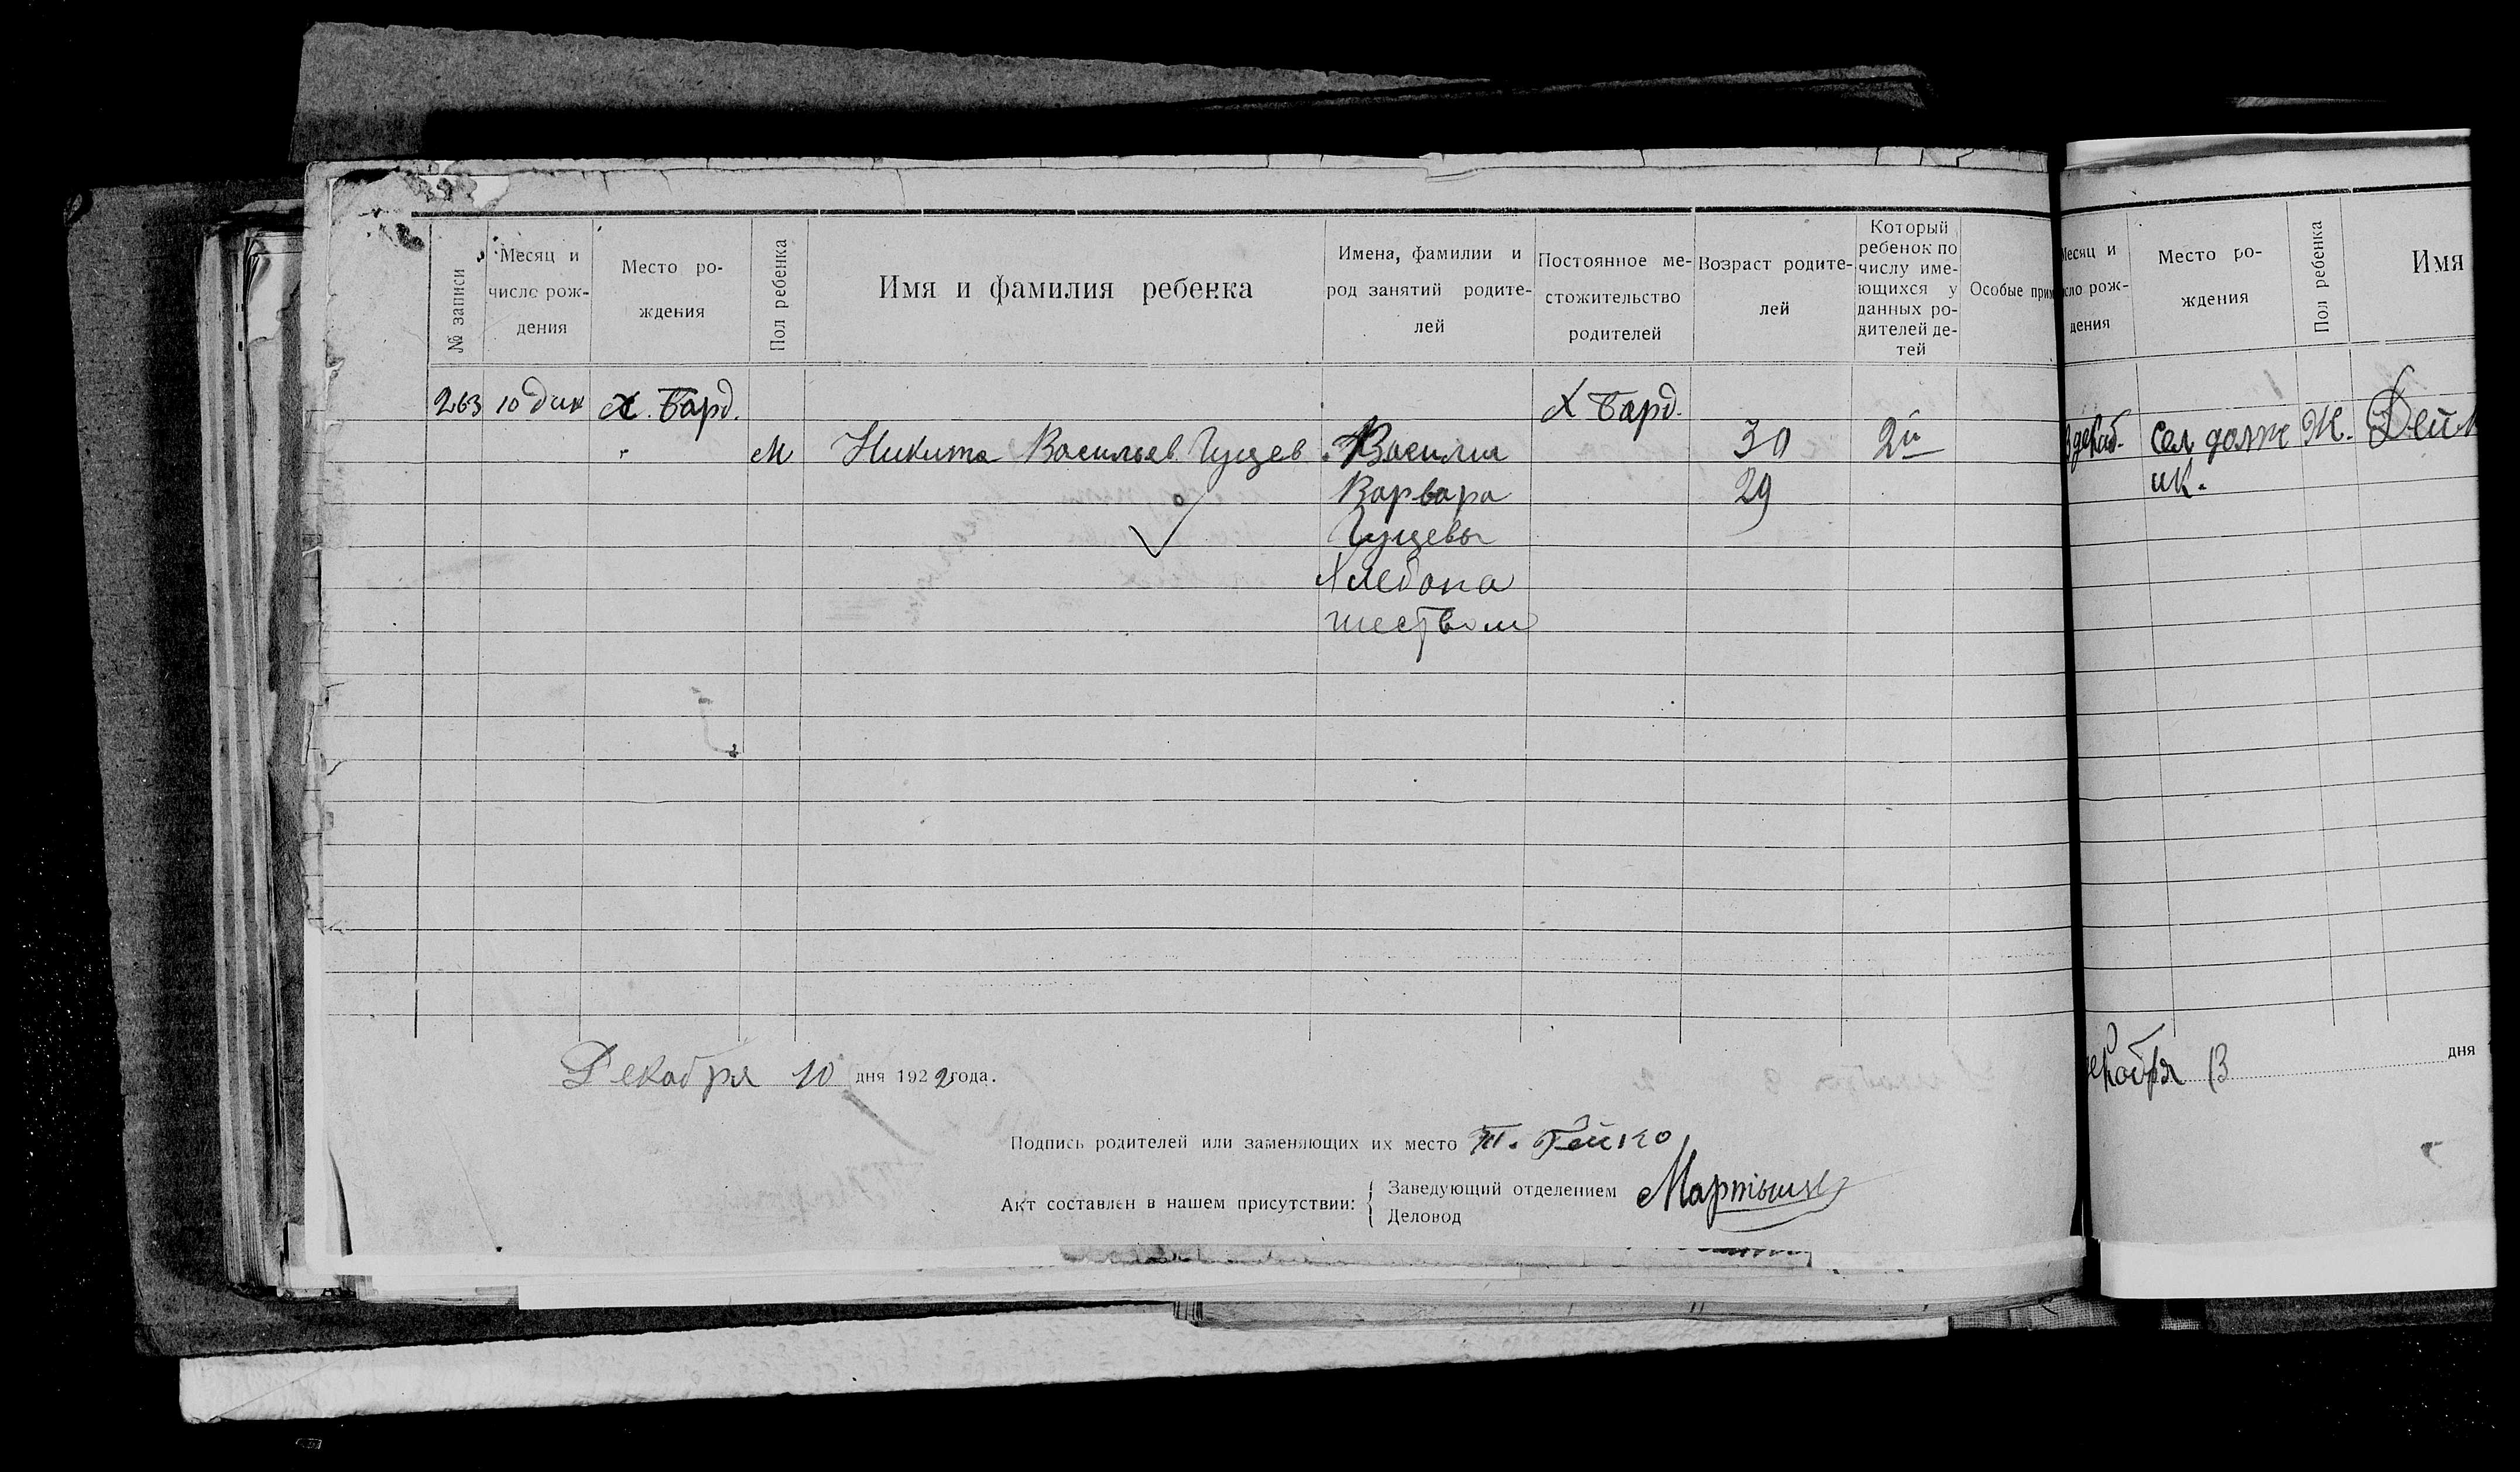 № записи
Месяц и
число рож-
дения
Место ро-
ждения
Пол ребенка
Имя и фамилия ребенка
Имена, фамилии и
род занятий родите-
лей
Постоянное ме-
стожительство
родителей
Возраст родите-
лей
Который
ребенок по
числу име-
ющихся у
данных ро-
дителей де-
тей
Особые прим
263 10 дек х. Бард. х Бард.
М Никита Васильев Гущев Василий 30 2й
Варвара 29
Гущевы
Хлебопа
шеством
Декабря 10 дня 1922 года.
Подпись родителей или заменяющих их место Т. Гейко
Акт составлен в нашем присутствии:
Заведующий отделением
Деловод
Месяц и
число рож-
дения
Место ро-
ждения
Пол ребенка
Имя
декаб. Сел должс Ж.
ик.
екабря 13 дня